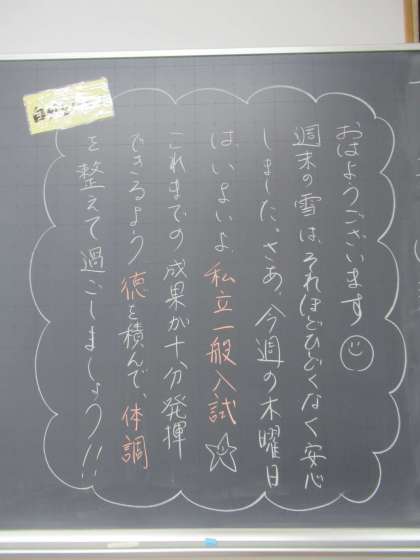 おはようございます
週末の雪は、それほどひどくなく安心
しました。さあ、今週の木曜日
は、いよいよ私立一般入試
これまでの成果が十分発揮
できるよう徳を積んで、体調
を整えて過ごしましょう!!